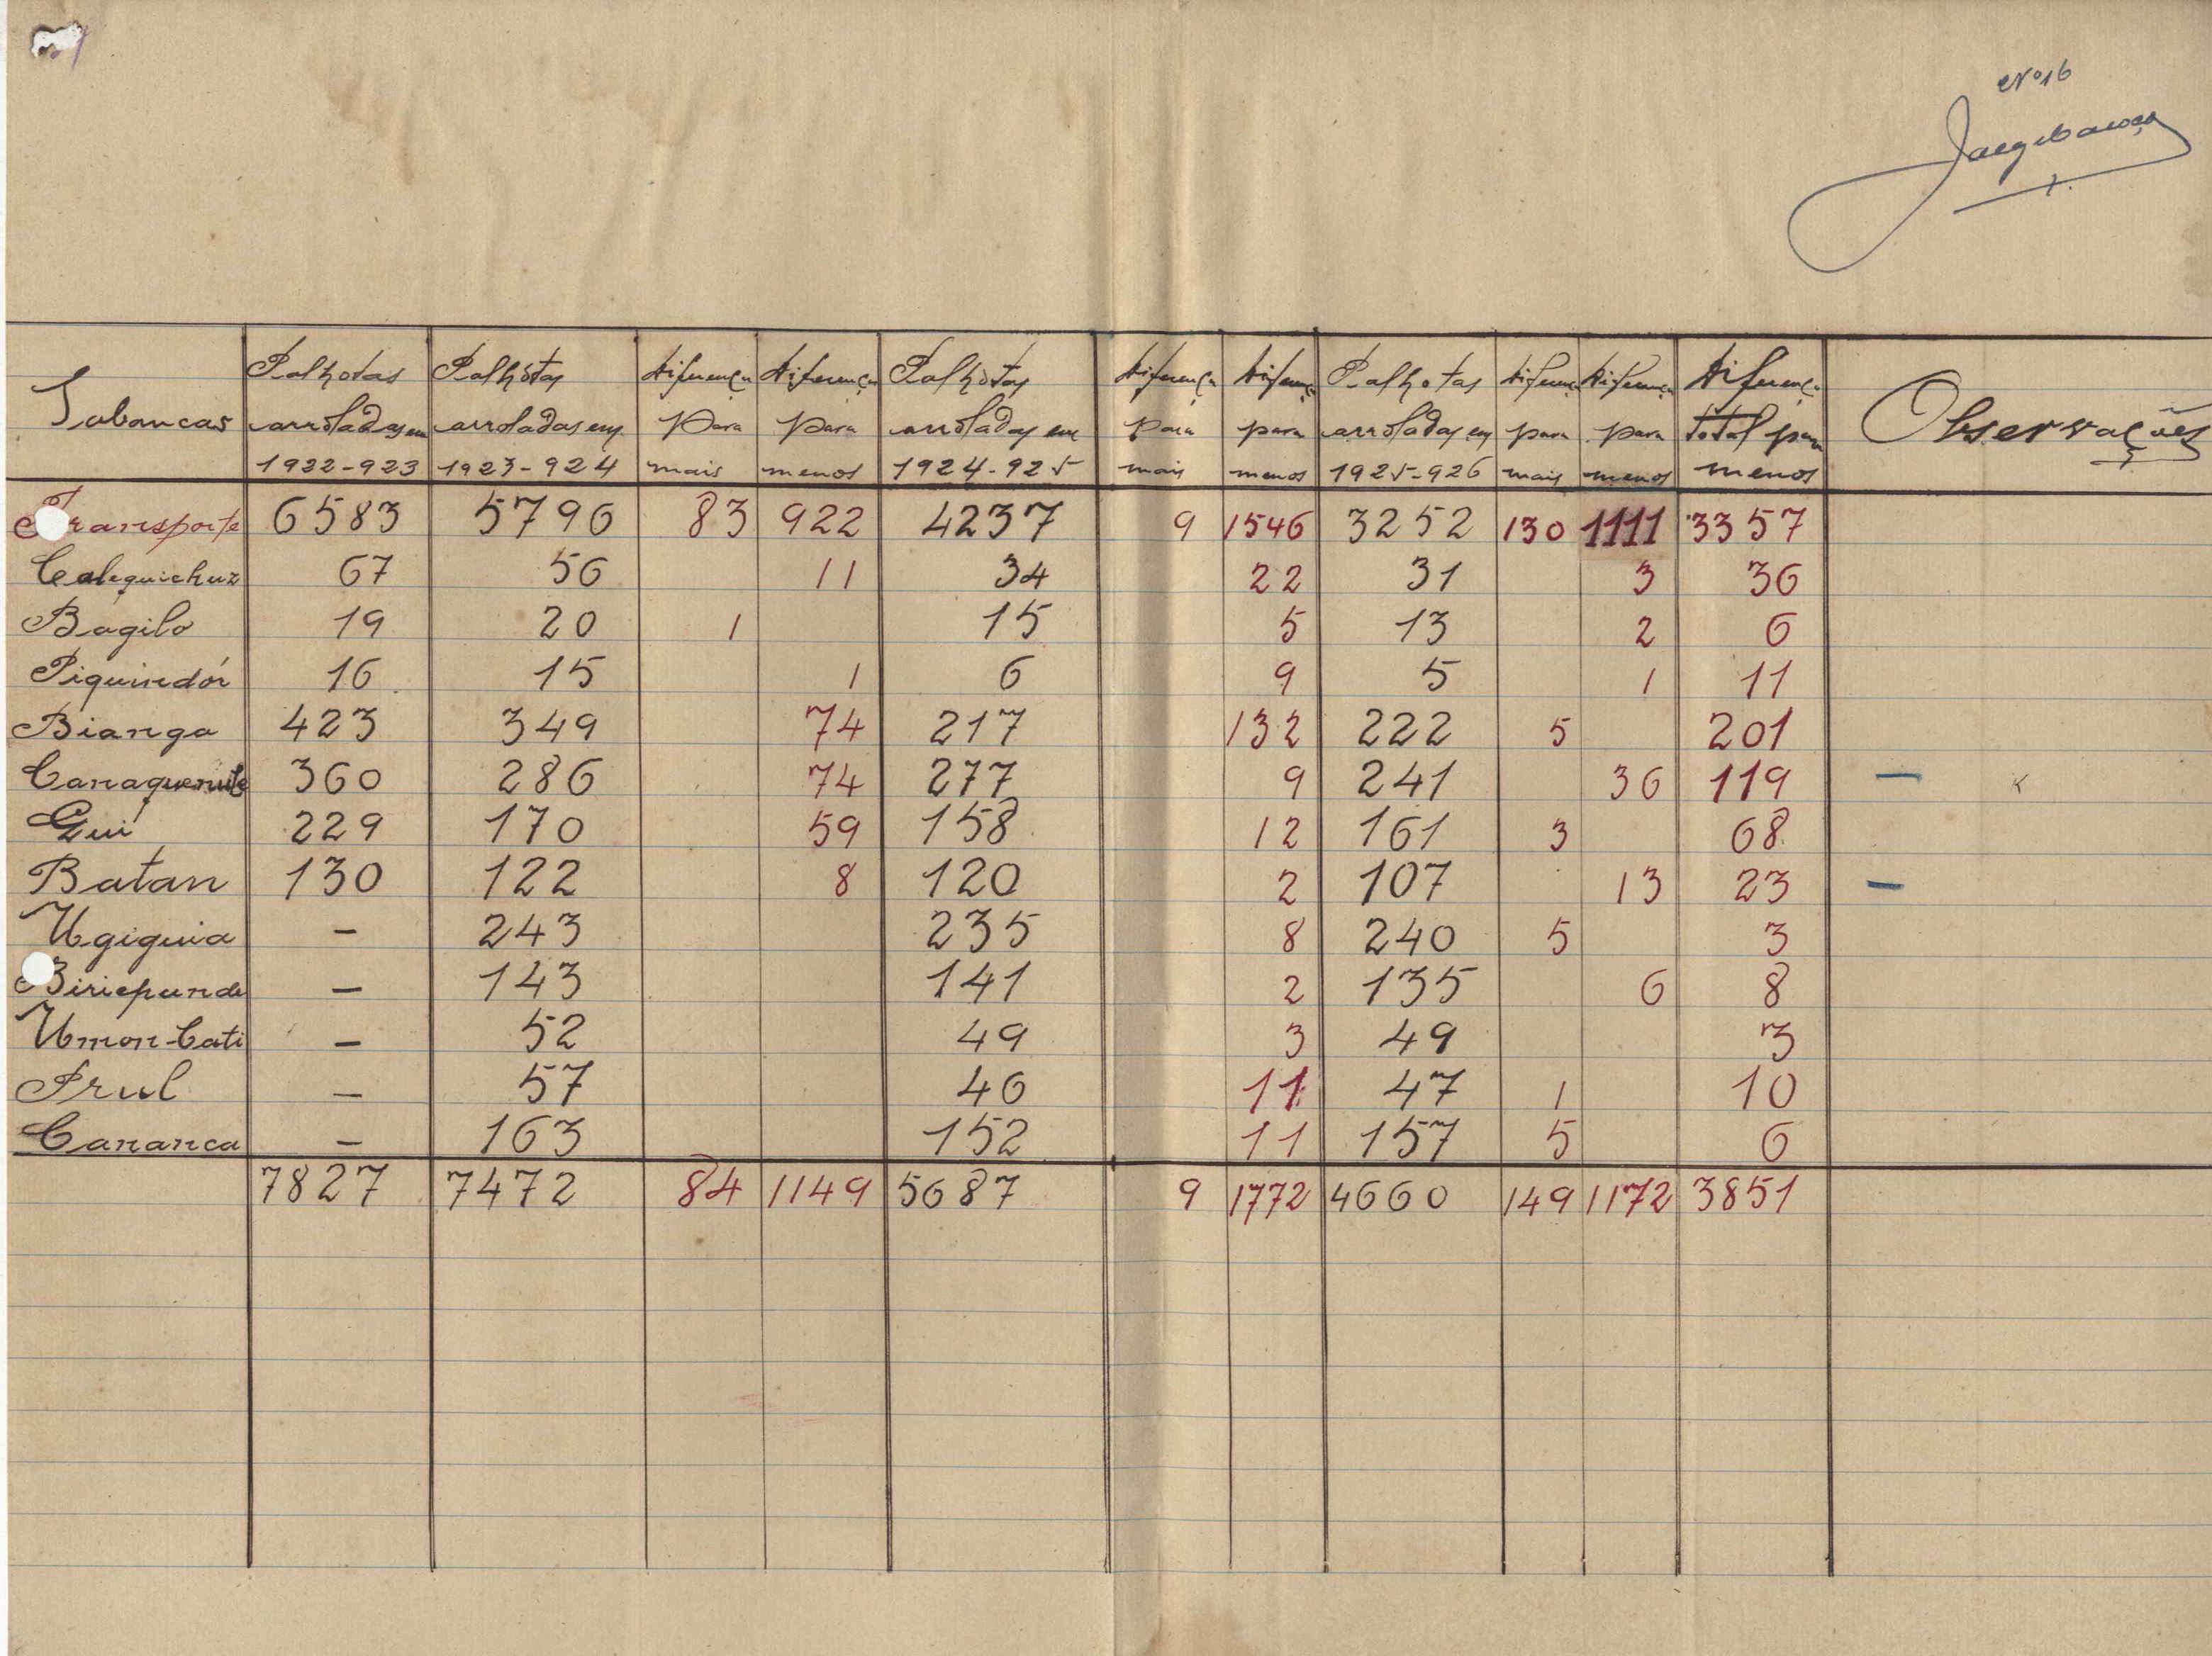 Nº 16
Tabancas | Palhotas arroladas em 1922-923 | Palhótas arroladas em 1923-924 | Diferença Para mais | Diferença Para menos | Palhótas arroladas em 1924-925 | Diferença Para mais | Diferença para menos | Palhotas arroladas em 1925-926 | Diferença para mais | Diferença para menos | Diferença total para menos | Observações
Transporte 6583 5796 83 922 4237 9 1546 3252 130 1111 3357
Calequichuz 67 56 11 34 22 31 3 36
Bagilo 19 20 1 15 5 13 2 6
Piquindór 16 15 1 6 9 5 1 11
Bianga 423 349 74 217 132 222 5 201
360 286 74 277 9 241 36 119 —
Gui 229 170 59 158 12 161 3 68
Batan 130 122 8 120 2 107 13 23 —
Ugiguia — 243 235 8 240 5 3
Biriepunde — 143 141 2 135 6 8
Umon-Cati — 52 49 3 49 3
Prul — 57 46 11 47 1 10
Cananca — 163 152 11 157 5 6
7827 7472 84 1149 5687 9 1772 4660 149 1172 3851